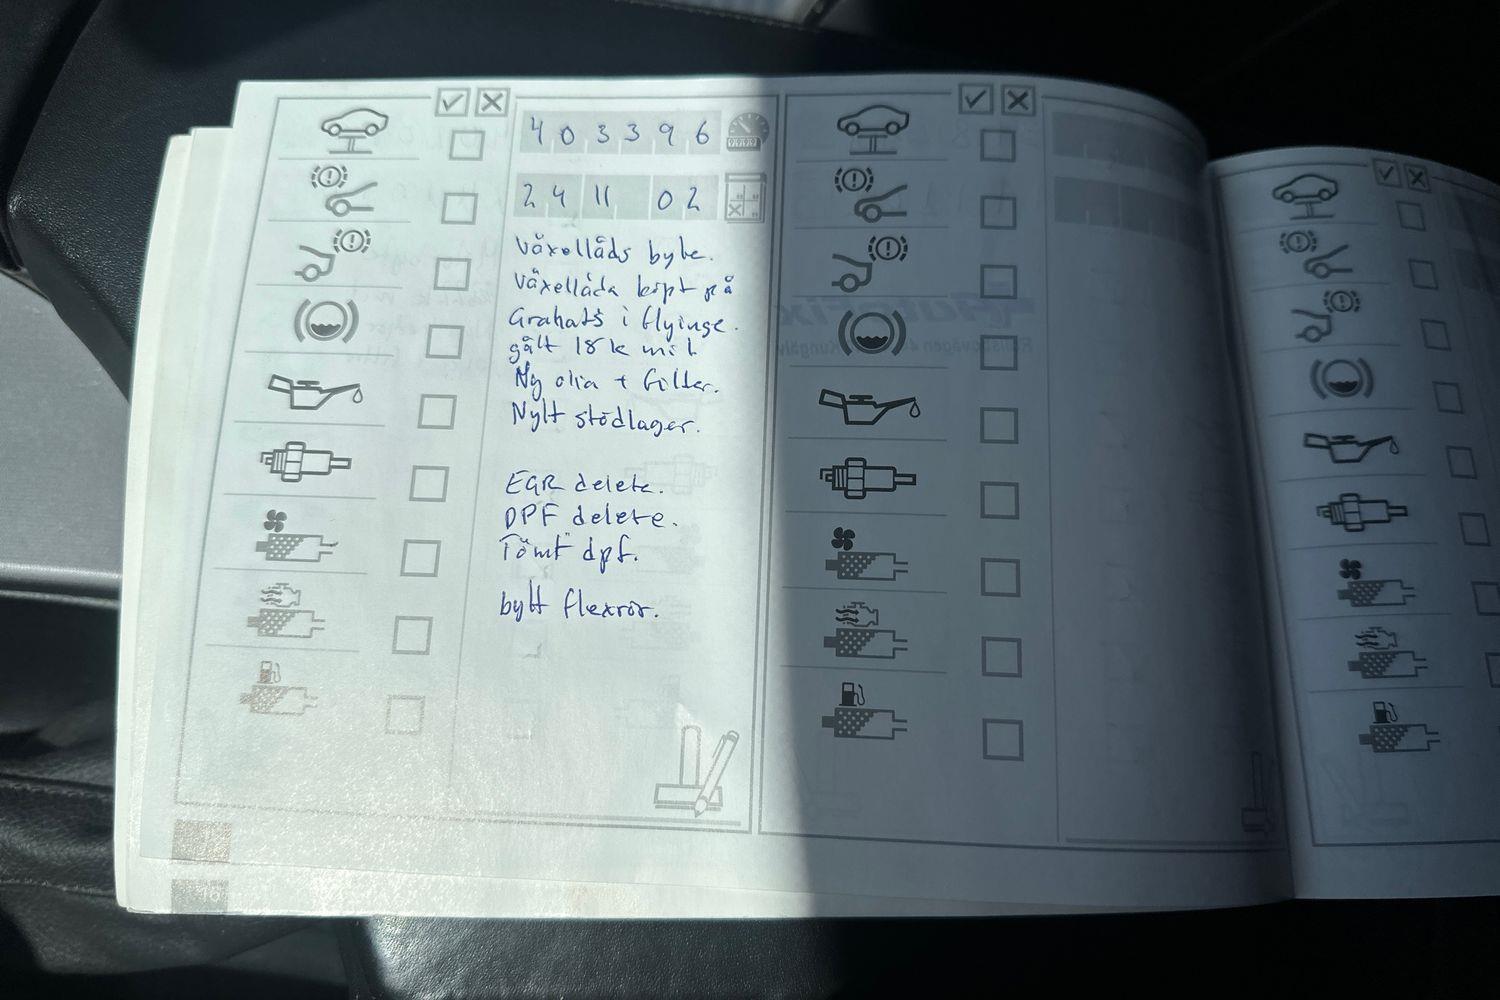 403396
24 11 02
Växellåds byte.
Växellåda köpt på
Grahats i flyinge.
gått 18k mil
Ny olia + filter.
Nytt stödlager.
EGR delete.
DPF delete.
Tömt dpf.
bytt flexrör.